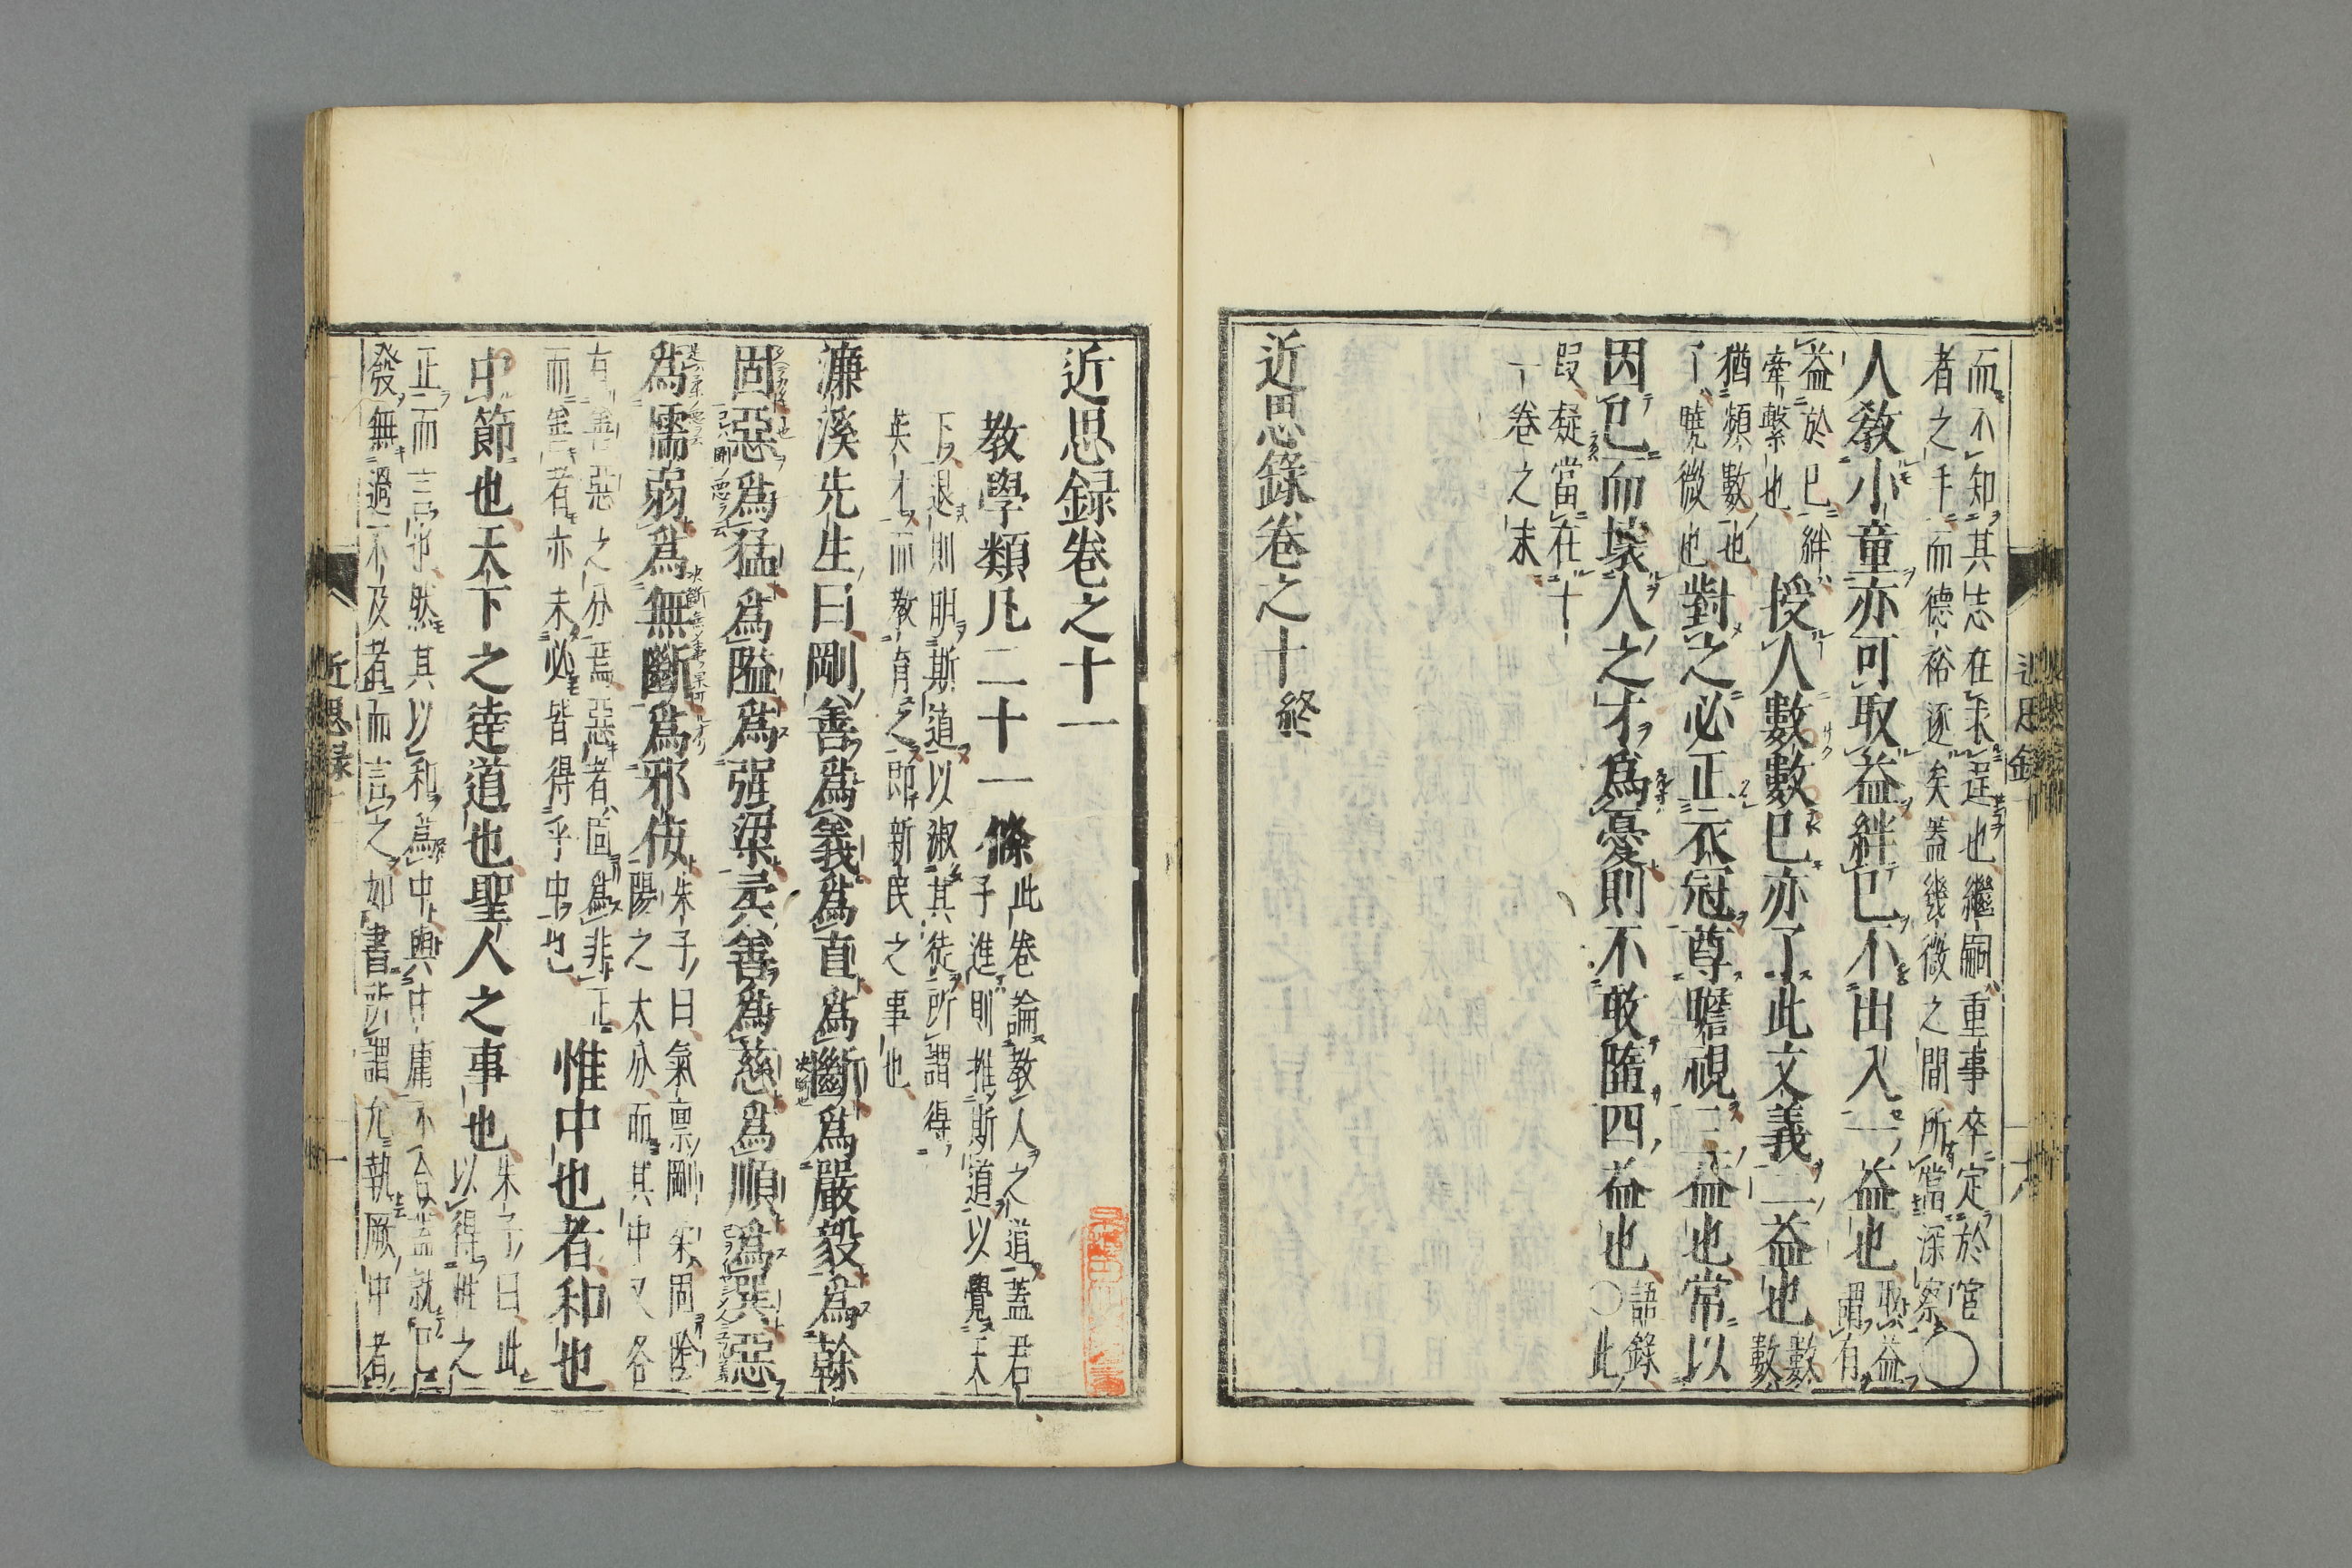 而不知其志在求逞也繼嗣重事卒定於宦
者之手而德裕逐矣蓋幾微之間所當深察〇
人敎小童亦可取益絆已不出入一益也
取益
謂有
益於已絆
牽繫也
授人數數已亦了此文義二益也
數
數
猶頻數也
了曉微也
對之必正衣冠尊瞻視三益也常以
因已而壞人之才爲憂則不敢隋四益也
語錄
〇此
叚疑當在十
一卷之末
近思錄卷之十終
近思録卷之十一
教學類凡二十一條
此卷論教人之道蓋君
子進則推斯道以覺天
下退則明斯道以淑其徒所謂得
英才而教育之即新民之事也
濂溪先生曰剛善爲義爲直爲斷爲嚴毅爲幹
固惡爲猛爲隘爲强梁柔善爲慈爲順爲巽惡
爲懦弱爲無斷爲邪佞
朱子曰氣禀剛柔固陰
陽之大分而其中又各
有善惡之分焉惡者固爲非正
而善者亦未必皆得乎中也
惟中也者和也
中節也天下之達道也聖人之事也
朱子曰此
以得性之
正而言也然其以和爲中與中庸不合蓋就已
發無過不及者而言之如書所謂允執厥中者
近思録